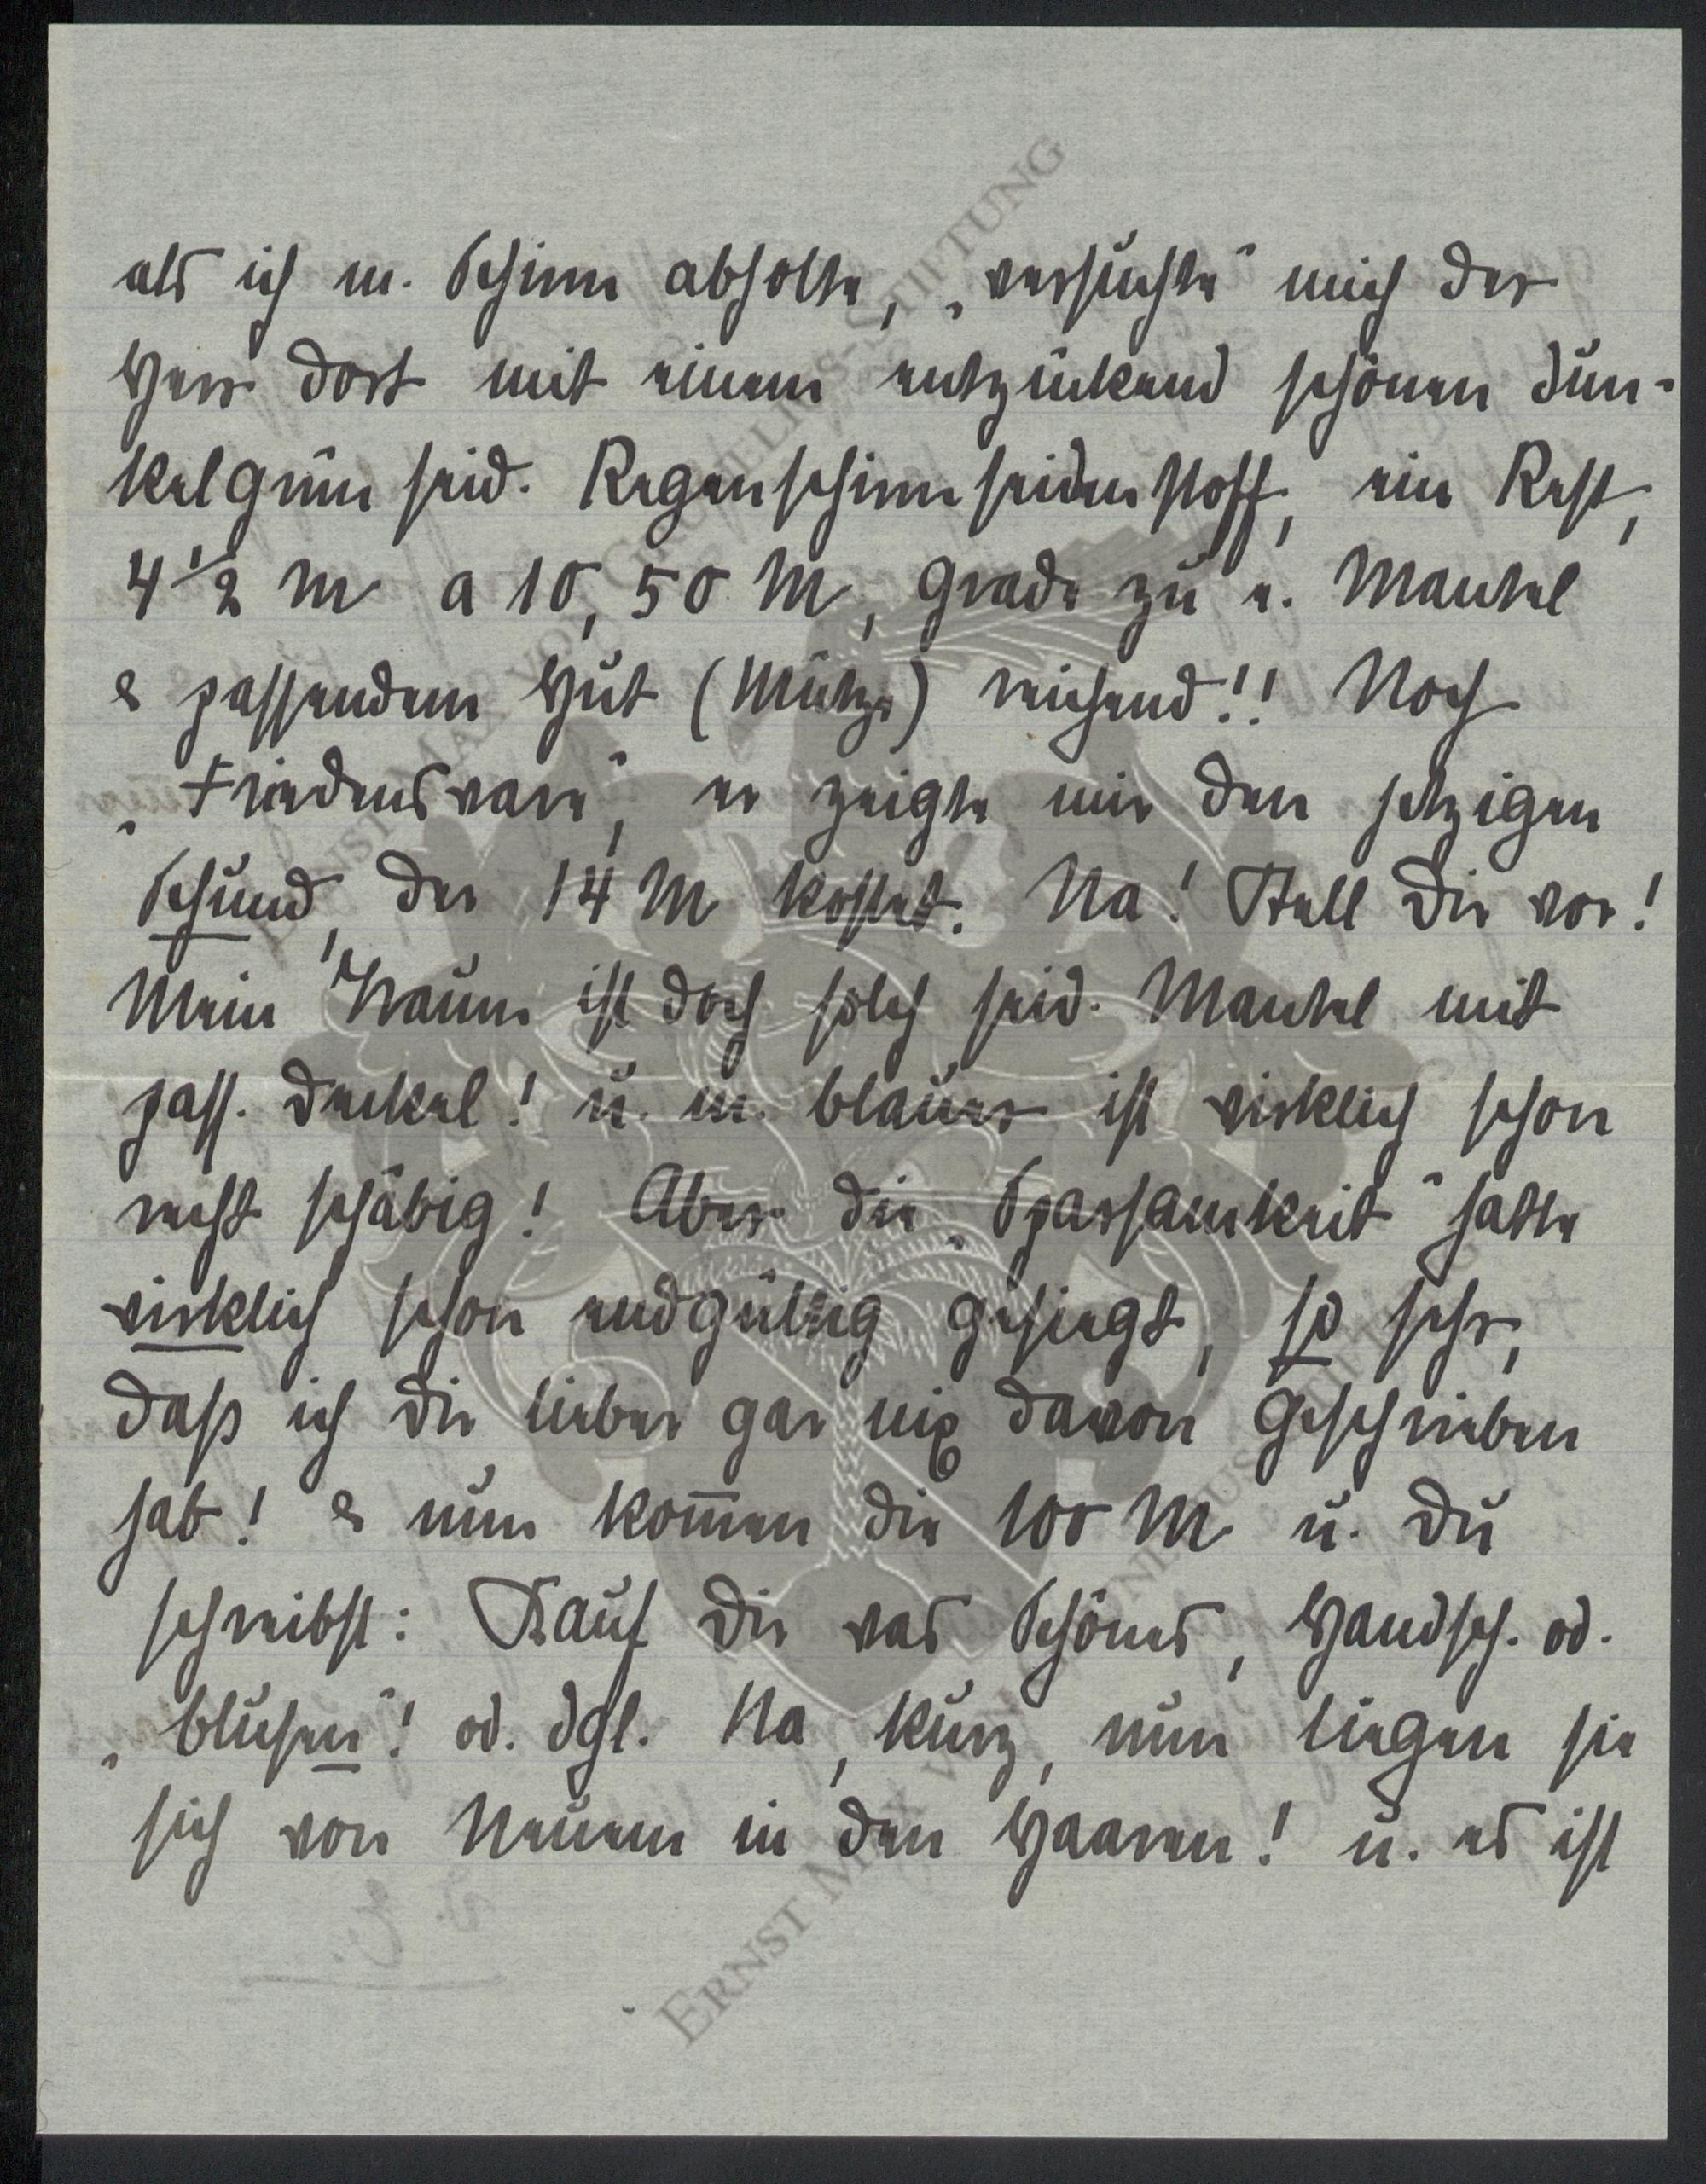 als ich m. Schirm abholte, „versuchte" mich der
Herr dort mit einem entzückend schönen dun-
kelgrün seid. Regenschirmseidenstoff, ein Rest,
4 1/2 m a 10,50 M, grade zu e. Mantel
& passendem Hut (Mütze) reichend!! Noch
„Friedensware", er zeigte mir den jetzigen
Schund, der 14 M kostet. Na! Stell Dir vor!
Mein Traum ist doch solch seid. Mantel mit
pass. Deckel! u. m. blauer ist wirklich schon
recht schäbig! Aber die „Sparsamkeit" hatte
wirklich schon endgültig gesiegt, so sehr,
daß ich Dir lieber gar nix davon geschrieben
hab! & nun kom̅en die 100 M u. Du
schreibst: Kauf Dir was Schönes, Handsch. od.
„blusen"! od. dgl. Na, kurz, nun liegen sie
sich von Neuem in den Haaren! u. es ist
ERNST MAX VON GRUNELIUS-STIFTUNG
ERNST MAX VON GRUNELIUS-STIFTUNG